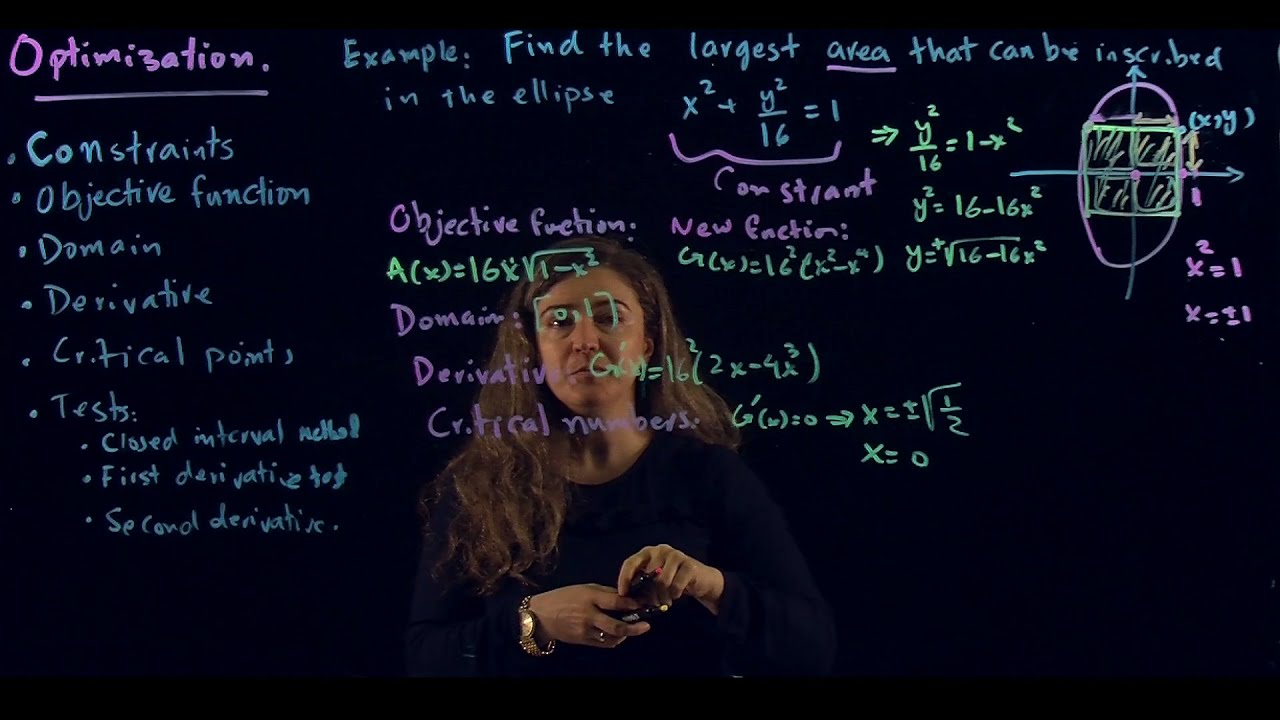 Optimization.
• Constraints
• Objective function
• Domain
• Derivative
• Critical points
• Tests:
• Closed interval method
• First derivative test
• Second derivative.
Example: Find the largest area that can be inscribed
in the ellipse x² + y²/16 = 1
Constrant
⇒ y²/16 = 1-x²
y² = 16-16x²
y = ±√16-16x²
(x,y)
1
x² = 1
x = ±1
Objective fuction: New fnction:
A(x) = 16x√1-x² G(x) = 16²(x²-x⁴)
Domain: [0,1]
Derivative: G'(x) = 16²(2x-4x³)
Critical numbers: G'(x)=0 ⇒ x = ±√1/2
x = 0